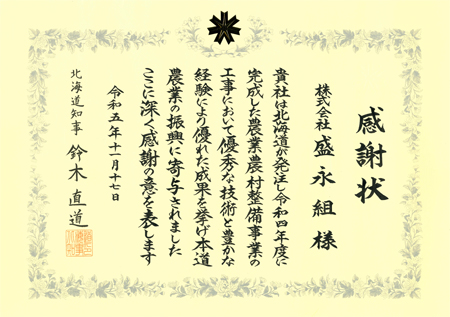 感謝状
株式会社 盛永組 様
貴社は北海道が発注し令和四年度に
完成した農業農村整備事業の
工事において優秀な技術と豊かな
経験により優れた成果を挙げ本道
農業の振興に寄与されました
ここに深く感謝の意を表します
令和五年十一月十七日
北海道知事 鈴木直道